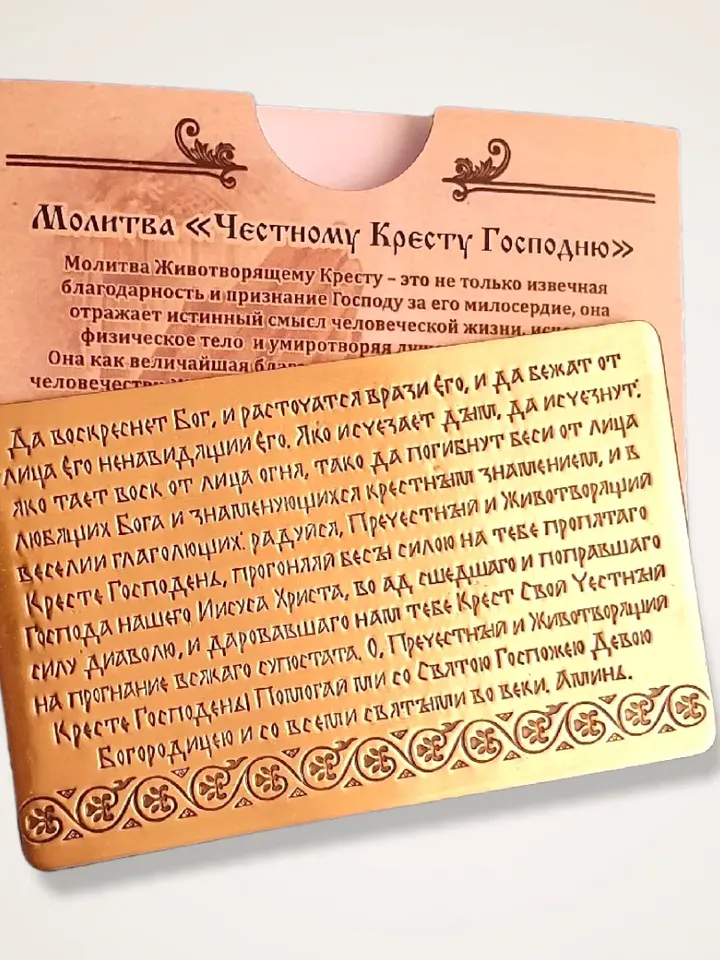 Молитва «Честному Кресту Господню»
Молитва Животворящему Кресту – это не только извечная
благодарность и признание Господу за его милосердие, она
отражает истинный смысл человеческой жизни,
физическое тело и умиротворяя
Она как величайшая
человечеству
Да воскреснет Бог, и расточатся врази Его, и да бежат от
лица Его ненавидящии Его. Яко исчезает дым, да исчезнут:
яко тает воск от лица огня, тако да погибнут беси от лица
любящих Бога и знаменующихся крестным знамением, и в
веселии глаголющих: радуйся, Пречестный и Животворящий
Кресте Господень, прогоняяй бесы силою на тебе пропятаго
Господа нашего Иисуса Христа, во ад сшедшаго и поправшаго
силу диаволю, и даровавшаго нам тебе Крест Свой Честный
на прогнание всякаго супостата. О, Пречестный и Животворящий
Кресте Господень! Помогай ми со Святою Госпожею Девою
Богородицею и со всеми святыми во веки. Аминь.